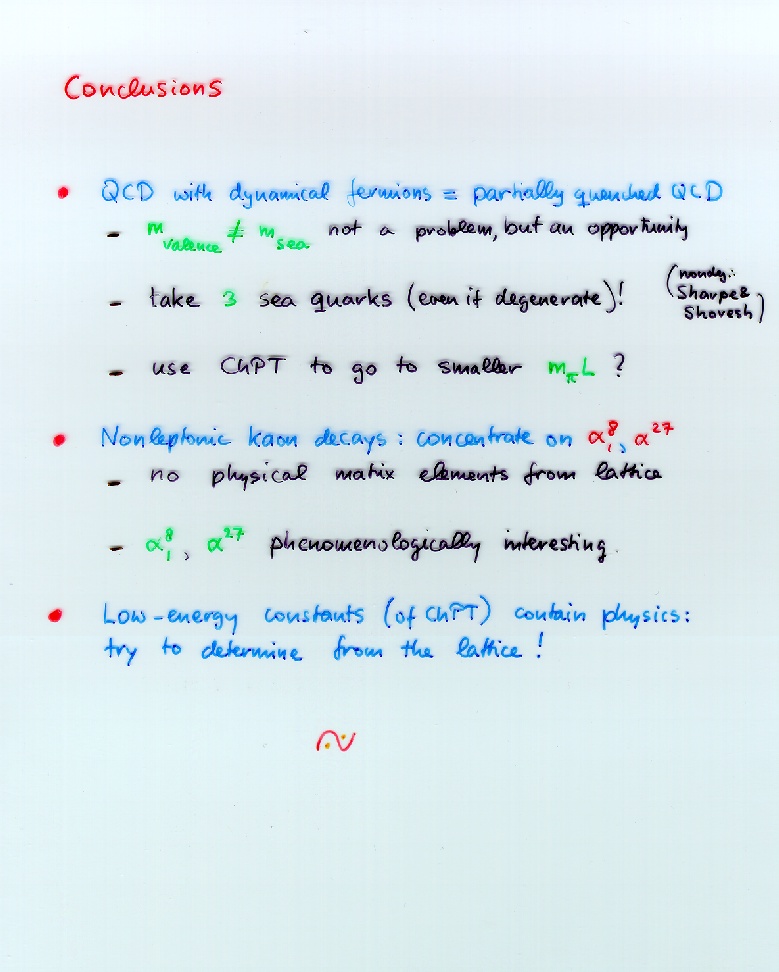 Conclusions
• QCD with dynamical fermions = partially quenched QCD
- m_valence ≠ m_sea not a problem, but an opportunity
- take 3 sea quarks (even if degenerate)!
(nondeg.:
Sharpe &
Shoresh)
- use ChPT to go to smaller m_π L ?
• Nonleptonic kaon decays : concentrate on α₁⁸, α²⁷
- no physical matrix elements from lattice
- α₁⁸, α²⁷ phenomenologically interesting.
• Low-energy constants (of ChPT) contain physics:
try to determine from the lattice !